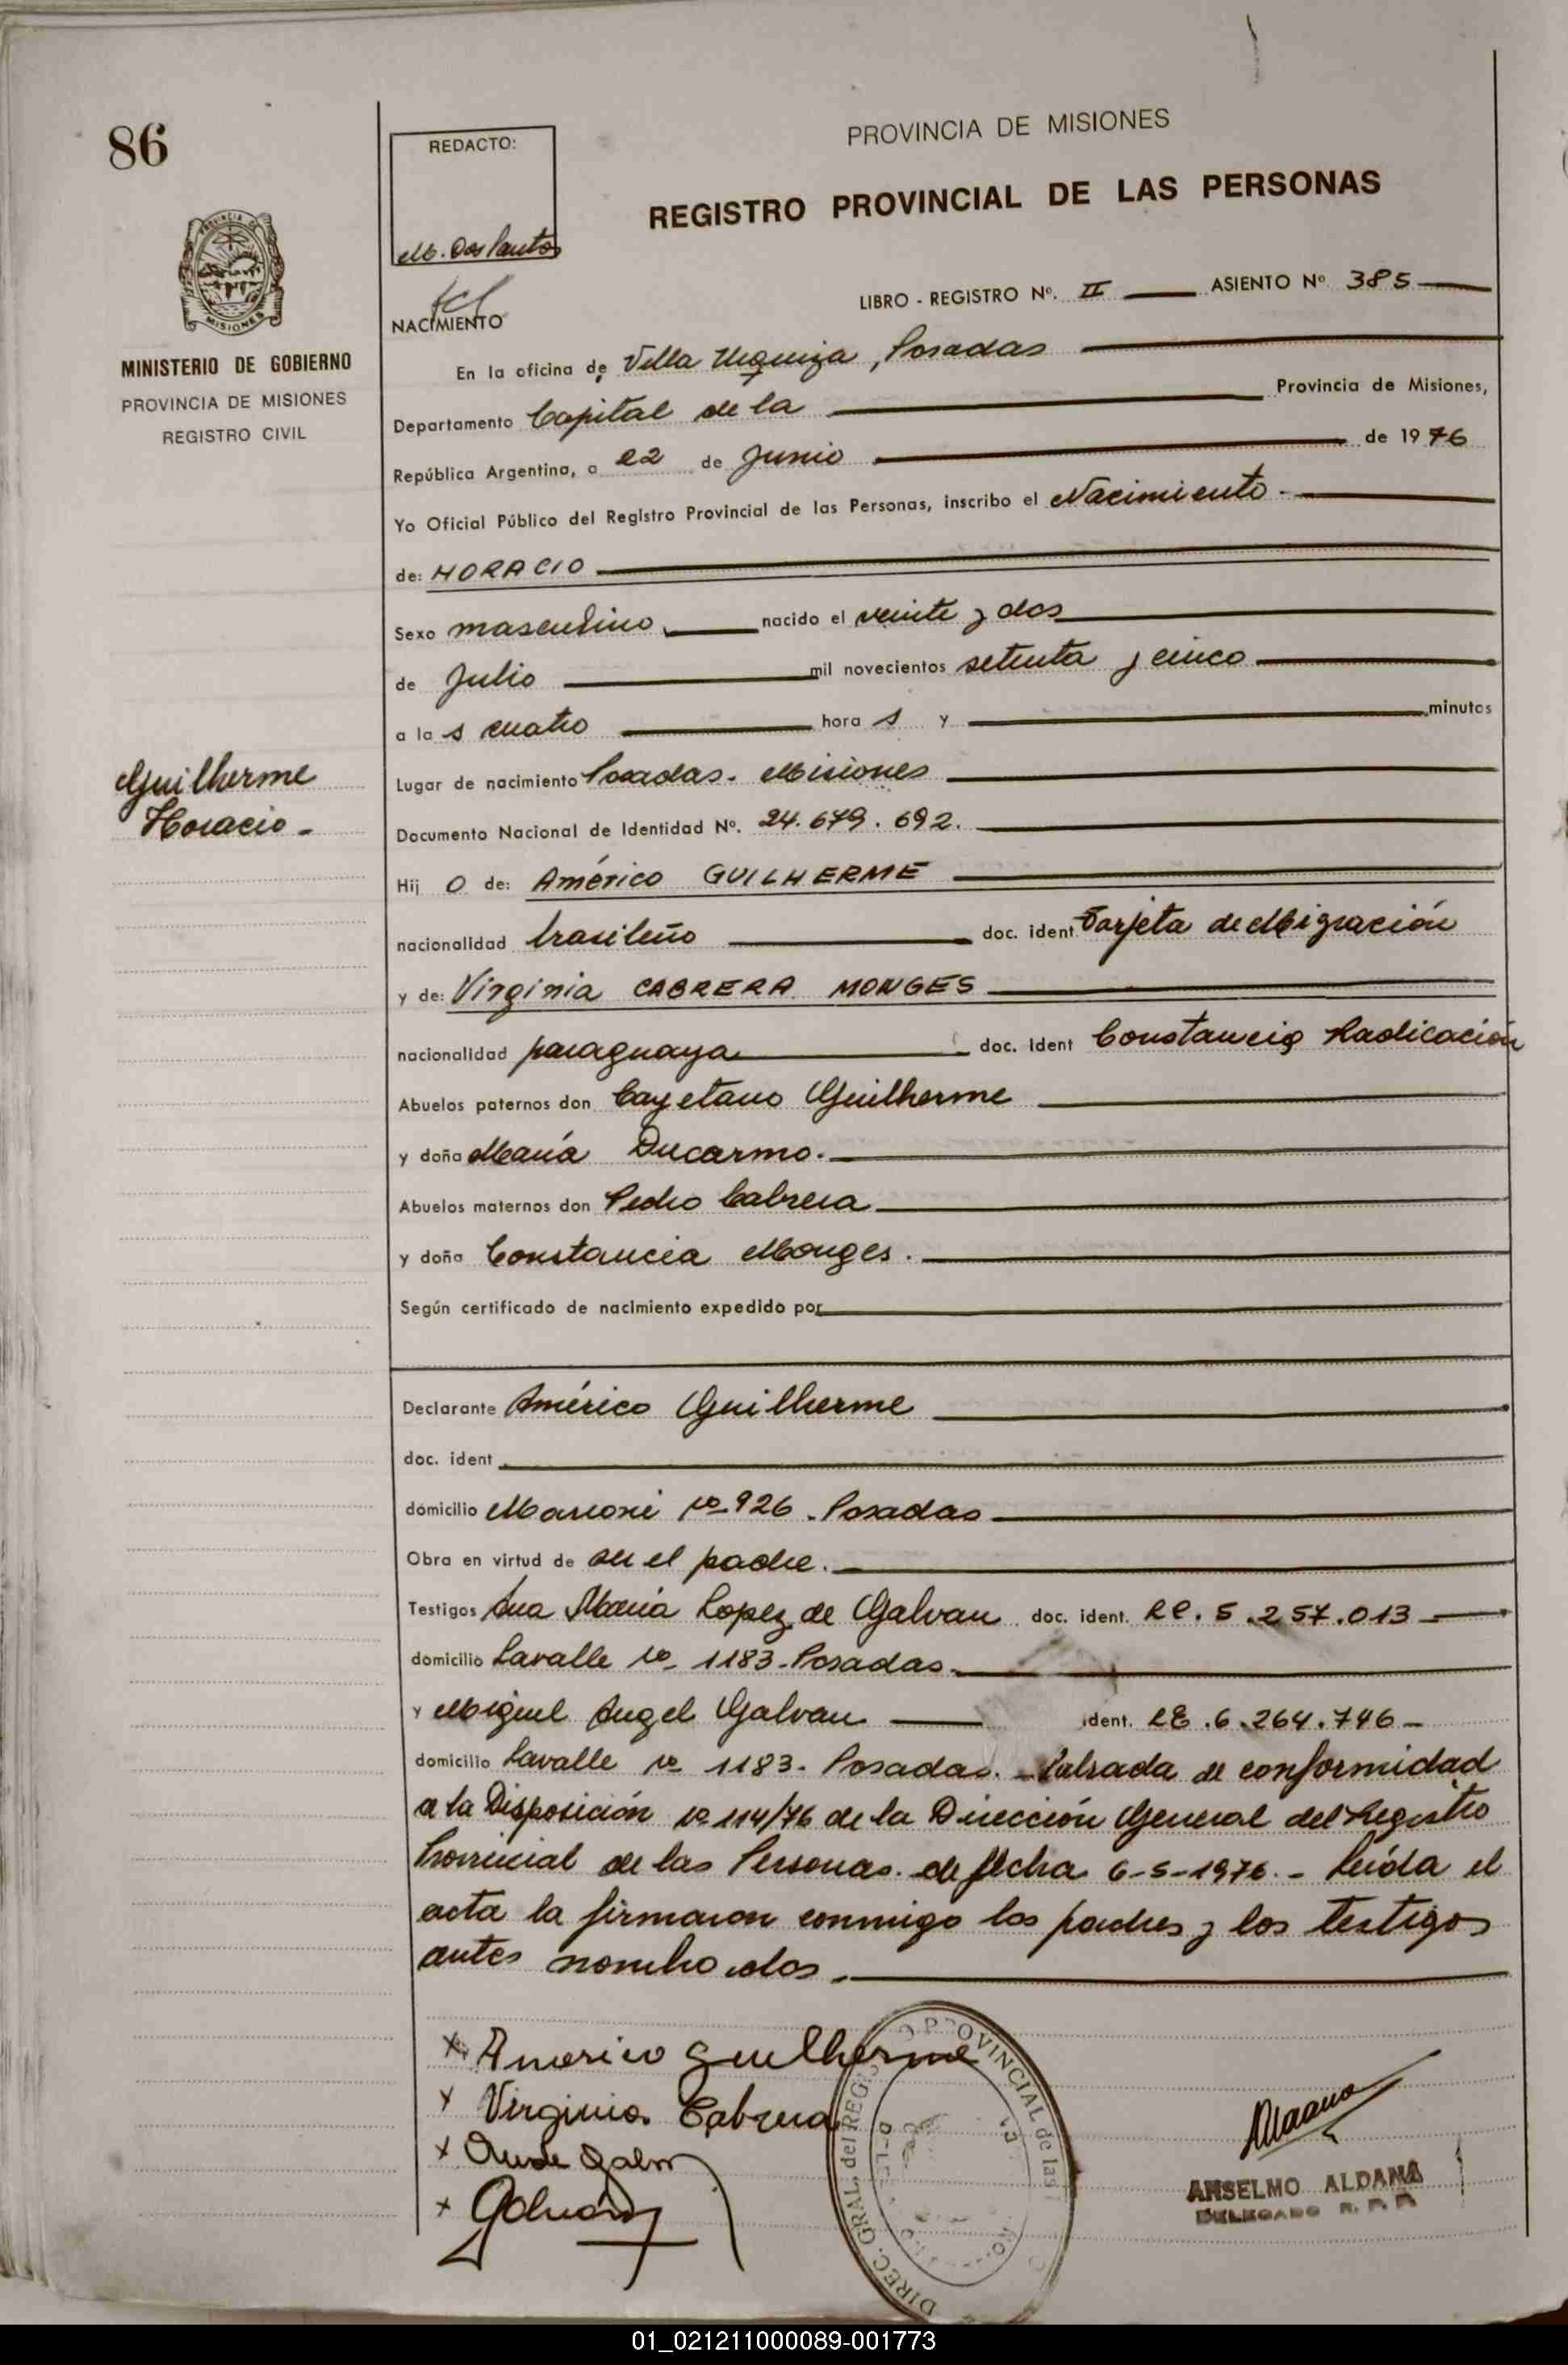 86
REDACTO:
M. Dos Santos
PROVINCIA DE MISIONES
REGISTRO PROVINCIAL DE LAS PERSONAS
PROVINCIA DE
MISIONES
MINISTERIO DE GOBIERNO
PROVINCIA DE MISIONES
REGISTRO CIVIL
LIBRO - REGISTRO Nº. II ASIENTO Nº 385
NACIMIENTO
En la oficina de Villa Urquiza, Posadas
Departamento Capital de la Provincia de Misiones,
República Argentina, a 22 de Junio de 1976
Yo Oficial Público del Registro Provincial de las Personas, inscribo el Nacimiento.
de: HORACIO
Sexo masculino, nacido el veinte y dos
de Julio mil novecientos setenta y cinco
a la s cuatro hora s y minutos
Lugar de nacimiento Posadas. Misiones
Guilherme
Horacio -
Documento Nacional de Identidad Nº. 24.679.692.
Hij o de: Américo GUILHERME
nacionalidad brasileño doc. ident Tarjeta de Migración
y de: Virginia CABRERA MONGES
nacionalidad paraguaya doc. ident Constancia Radicación
Abuelos paternos don Cayetano Guilherme
y doña María Ducarmo.
Abuelos maternos don Pedro Cabrera
y doña Constancia Monges.
Según certificado de nacimiento expedido por
Declarante Américo Guilherme
doc. ident
domicilio Marconi nº 926 - Posadas
Obra en virtud de ser el padre.
Testigos Ana María Lopez de Galvan doc. ident. LC. 5.257.013
domicilio Lavalle nº 1183 - Posadas.
y Miguel Angel Galvan ident. LE. 6.264.746 -
domicilio Lavalle nº 1183 - Posadas. - Labrada de conformidad
a la Disposición nº 114/76 de la Dirección General del Registro
Provincial de las Personas de fecha 6-5-1976. - Leída el
acta la firmaron conmigo los padres y los testigos
antes nombrados.
x Americo Guilherme
x Virginia Cabrera
x
x Galván
DIREC. GRAL. del REG PROVINCIAL de las
ANSELMO ALDANA
DELEGADO R. P. P.
01_021211000089-001773